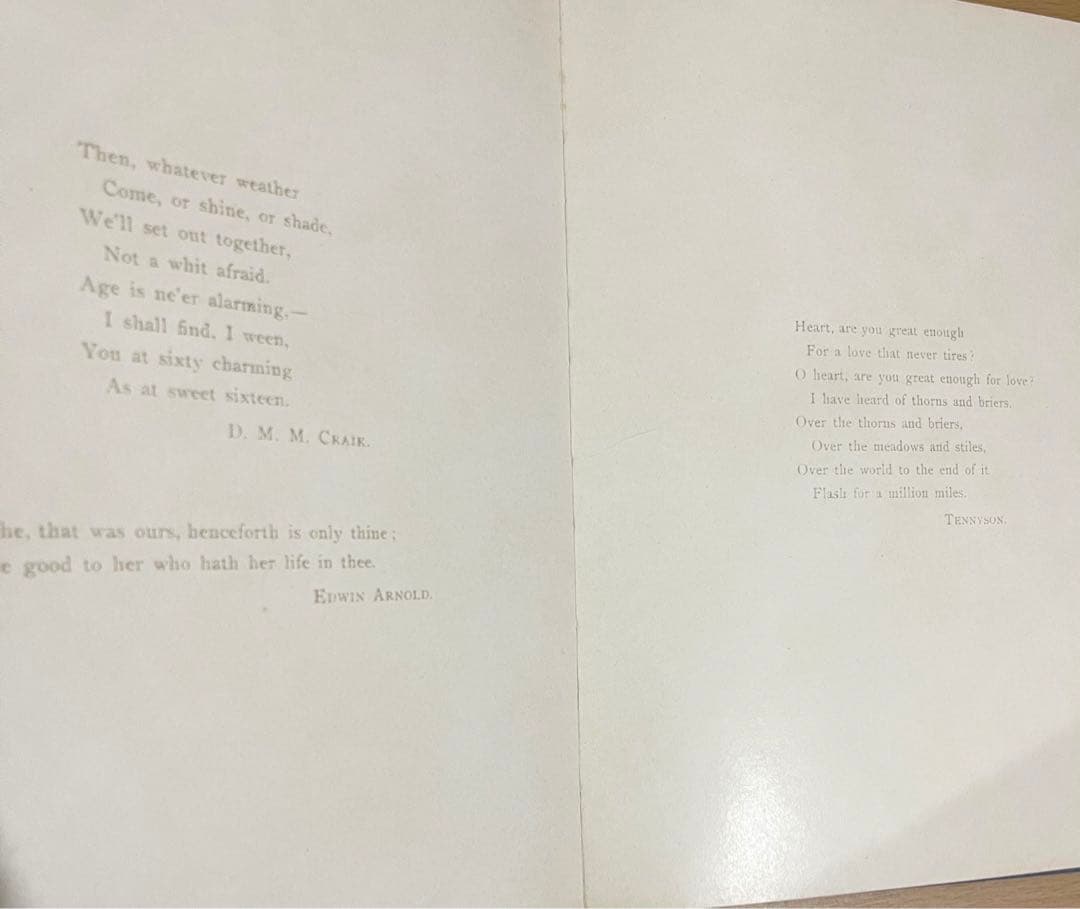 Then, whatever weather
Come, or shine, or shade,
We'll set out together,
Not a whit afraid.
Age is ne'er alarming,—
I shall find, I ween,
You at sixty charming
As at sweet sixteen.
D. M. M. CRAIK.
he, that was ours, henceforth is only thine;
e good to her who hath her life in thee.
EDWIN ARNOLD.
Heart, are you great enough
For a love that never tires?
O heart, are you great enough for love?
I have heard of thorns and briers.
Over the thorns and briers,
Over the meadows and stiles,
Over the world to the end of it
Flash for a million miles.
TENNYSON.